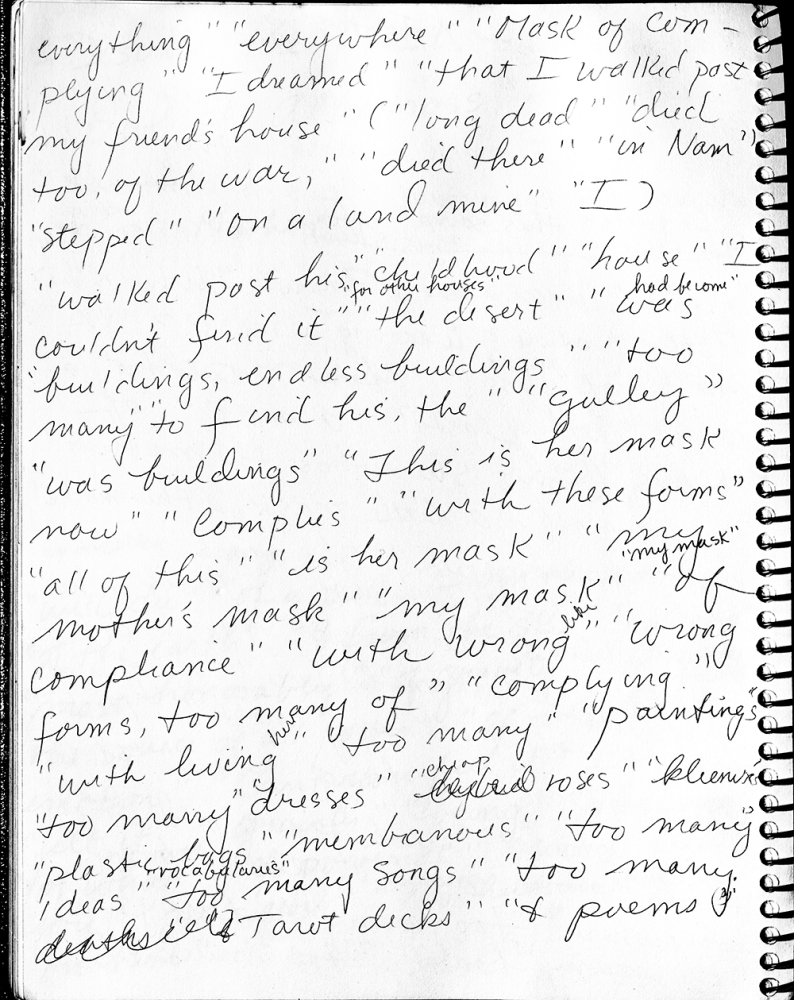 everything" "everywhere" "Mask of com-
plying" "I dreamed" "that I walked past
my friend's house" ("long dead" "died
too, of the war," "died there" "in Nam")
"stepped" "on a land mine" "I)
"walked past his" "childhood" "house" "I
"for other houses" had become"
couldn't find it" "the desert" "was
"buildings, endless buildings" "too
many" "to find his. the" "gulley"
"was buildings" "This is her mask
now" "Complies" "with these forms"
"all of this" "is her mask" "my
"my mask"
mother's mask" "my mask" "of
like
compliance" "with wrong" "wrong
forms, too many of" "complying"
here
"with living" too many" "paintings"
"cheap
"too many" "dresses" roses" "kleenex"
"plastic bags" "membranous" "too many"
"vocabularies"
ideas" "too many songs" "too many
deaths & Tarot decks" "& poems